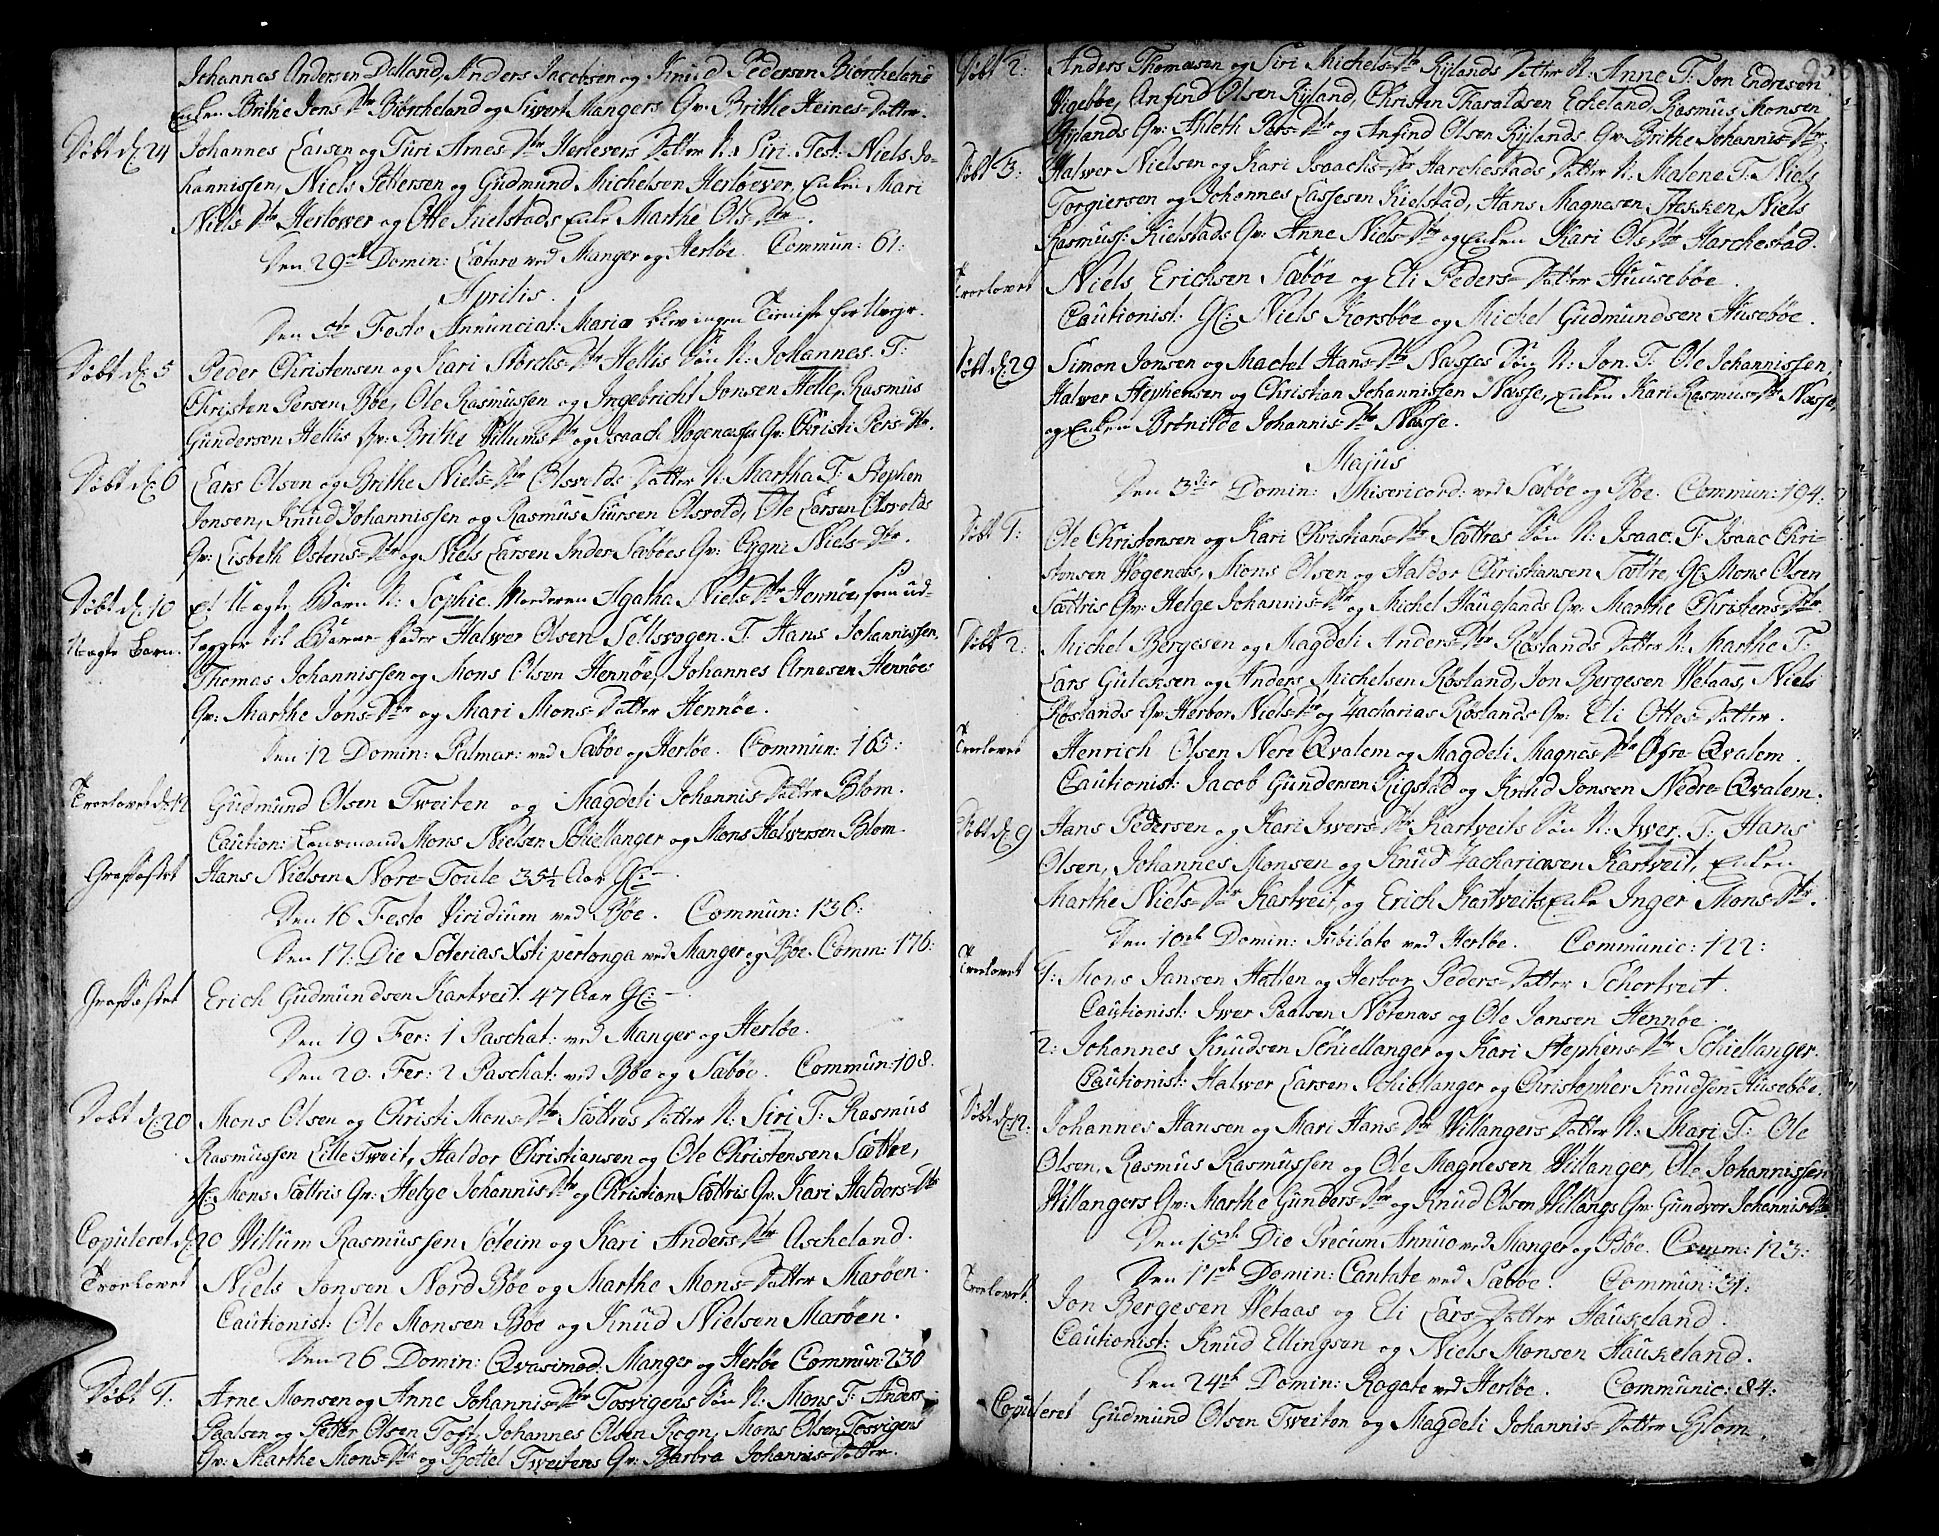 Johannes Andersen Dalland, Anders Jacobsen og Knud Pedersen Biørchelens
Enken Brithe Jens Dtr Biørcheland og Siwert Mangers Qv: Brithe Heines-Datter.
Døbt d: 24 Johannes Larsen og Turi Arnes-Dtr Herlevers Datter N: Siri. Test: Niels Jo-
hannissen, Niels Pettersen og Gudmund Michelsen Herløever, Enken Mari
Niels Dtr Herløwer og Otte Kielstads Enke Marthe Ols Dtr.
Den 29de Domin: Lætare ved Manger og Herløe. Commun: 61:
Aprilis.
Den 5te Festo Annunciat: Mariæ blev ingen Tieniste for Uvejr.
Døbt d: 5 Peder Christensen og Kari Størchs-Dtr Hellis Søn N: Johannes. T:
Christen Persen Bøe, Ole Rasmussen og Ingebricht Jonsen Helle, Rasmus
Gundersen Hellis Qv: Brithe Willums Dtr og Isaach Wogenæsses Qv: Christi Pers-Dtr.
Døbt d: 6 Lars Olsen og Brithe Niels-Dtr Olsvolds Datter N: Martha T: Stephen
Jonsen, Knud Johannissen og Rasmus Siursen Olsvold, Ole Larsen Olsvolds
Qv: Lisbeth Østens-Dtr og Niels Larsen Inder Sæbøes Qv: Cygni Niels-Dtr.
Døbt d: 10 Et Uægte Barn N: Sophie. Moderen Agatha Niels-Dtr Hennøe, som ud-
Uægte Barn. lægger til Barne-fader Halwer Olsen Sellevogen. T: Hans Johannissen,
Thomas Johannissen og Mons Olsen Hennøe, Johannes Arnesen Hennøes
Qv: Marthe Jons-Dtr og Mari Mons-Datter Hennøe.
Den 12 Domin: Palmar: ved Sæbøe og Herløe. Commun: 165:
Trolovet d: 12 Gudmund Olsen Tweiten og Magdeli Johannis-Datter Blom.
Caution: Lensmand Mons Nielsen Schiellanger og Mons Halwersen Blom.
Grafæstet Hans Nielsen Nore-Toule 35½ Aar Gl:
Den 16 Festo Viridium ved Bøe. Commun: 136:
Den 17: Die Soterias Xsti perlonga ved Manger og Bøe. Comm: 176:
Grafæstet Erich Gudmundsen Kartveit. 47 Aar Gl:
Den 19 Fer: 1 Paschat: ved Manger og Herløe.
Den 20. Fer: 2 Paschat: ved Bøe og Sæbøe. Commun: 108.
Døbt d: 20 Mons Olsen og Christi Mons-Dtr Sættres Datter N: Siri T: Rasmus
Rasmussen Lille Tweit, Haldor Christiansen og Ole Christensen Sættre,
Gl: Mons Sættris Qv: Helge Johannis Dtr og Christian Sættris Qv: Kari Haldors-Dtr
Copuleret d: 20 Willum Rasmussen Soleim og Kari Anders-Dtr Ascheland.
Trolovet Niels Jonsen Nord Bøe og Marthe Mons-Datter Marøen.
Cautionist: Ole Monsen Bøe og Knud Nielsen Marøen.
Den 26 Domin: Qvasimod: Manger og Herløe Commun: 230
Døbt 1. Arne Monsen og Anne Johannis-Dtr Toswigens Søn N: Mons T: Anders
Paalsen og Petter Olsen Toft, Johannes Olsen Rogn, Mons Olsen Toswigens
Qv: Marthe Mons-Dtr og Bottel Tweitens Qv: Barbra Johannis-Datter.
Døbt 2: Anders Thomæsen og Siri Michels-Dtr Rylands Datter N: Anne T: Jon Endresen
Wigebøe, Anfind Olsen Ryland, Christen Tharaldsen Echeland, Rasmus Monsen
Rylands Qv: Ahleth Pers-Dtr og Anfind Olsen Rylands Qv: Brithe Johannis-Dtr.
Døbt 3: Halwer Nielsen og Kari Isaachs-Dtr Harchestads Datter N: Malene T: Niels
Torgiersen og Johannes Lassesen Kielstad, Hans Magnesen Fesken, Niels
Rasmuss: Kielstads Qv: Anne Niels-Dtr og Enken Kari Ols Dtr Harchestad.
Trolovet Niels Erichsen Sæbøe og Eli Peders-Datter Huusebøe.
Cautionist: Gl: Niels Korsbøe og Michel Gudmundsen Husebøe.
Døbt d: 29 Simon Jonsen og Machel Hans-Dtr Nasses Søn N: Jon. T: Ole Johannissen,
Halwer Stephensen og Christian Johannissen Nasse, Enken Kari Rasmus-Dtr Nasse,
og Enken Brønilde Johannis-Dtr Nasse.
Majus
Den 3die Domin: Misericord: ved Sæbøe og Bøe. Commun: 194:
Døbt 1: Ole Christensen og Kari Christians-Dtr Sættres Søn N: Isaac. T: Isaac Chri-
stensen Wogenes, Mons Olsen og Haldor Christiansen Sættre, Gl: Mons Olsen
Sættris Qv: Helge Johannis-Dtr og Michel Hauglands Qv: Marthe Christens-Dtr.
Døbt 2: Michel Bergesen og Magdeli Anders-Dtr Røslands Datter N: Marthe T:
Lars Gulchsen og Anders Michelsen Røsland, Jon Bergesen Wetaas, Niels
Røslands Qv: Herbor Niels-Dtr og Zacharias Røslands Qv: Eli Ottes-Datter.
Trolovet Henrich Olsen Nere Qvalem og Magdeli Magnes-Dtr Øfre-Qvalem.
Cautionist: Jacob Gundersen Rigstad og Knud Jonsen Nedre-Qvalem.
Døbt d: 9 Hans Pedersen og Kari Iwers-Dtr Kartveits Søn N: Iwer. T: Hans
Olsen, Johannes Monsen og Knud Zachariæsen Kartveit, Enken
Marthe Niels-Dtr Kartveit, og Erich Kartveits Enke Inger Mons-Dtr.
Den 10de Domin: Jubilate ved Herløe. Communic: 122:
Trolovet 1: Mons Jansen Hatten og Herbor Peders-Datter Schortveit.
Cautionist: Iwer Paalsen Nøtenæs og Ole Jansen Hennøe.
2: Johannes Knudsen Schiellanger og Kari Stephens-Dtr Schiellanger.
Cautionist: Halwer Larsen Schiellanger og Christopher Knudsen Husebøe.
Døbt d: 12: Johannes Hansen og Mari Hans-Dtr Willangers Datter N: Mari T: Ole
Olsen, Rasmus Rasmussen og Ole Magnesen Willanger, Ole Johannissen
Willangers Qv: Marthe Gunders-Dtr og Knud Olsen Willangs Qv: Gundvor Johannis-Dtr
Den 15de Die Precum Annuo ved Manger og Bøe. Comm: 123:
Den 17de Domin: Cantate ved Sæbøe. Commun: 31:
Trolovet. Jon Bergesen Wetaas og Eli Lars-Datter Haukeland.
Cautionist: Knud Ellingsen og Niels Monsen Haukeland.
Den 24de Domin: Rogate ved Herløe. Communic: 84:
Copuleret Gudmund Olsen Tweiten og Magdeli Johannis-Datter Blom.